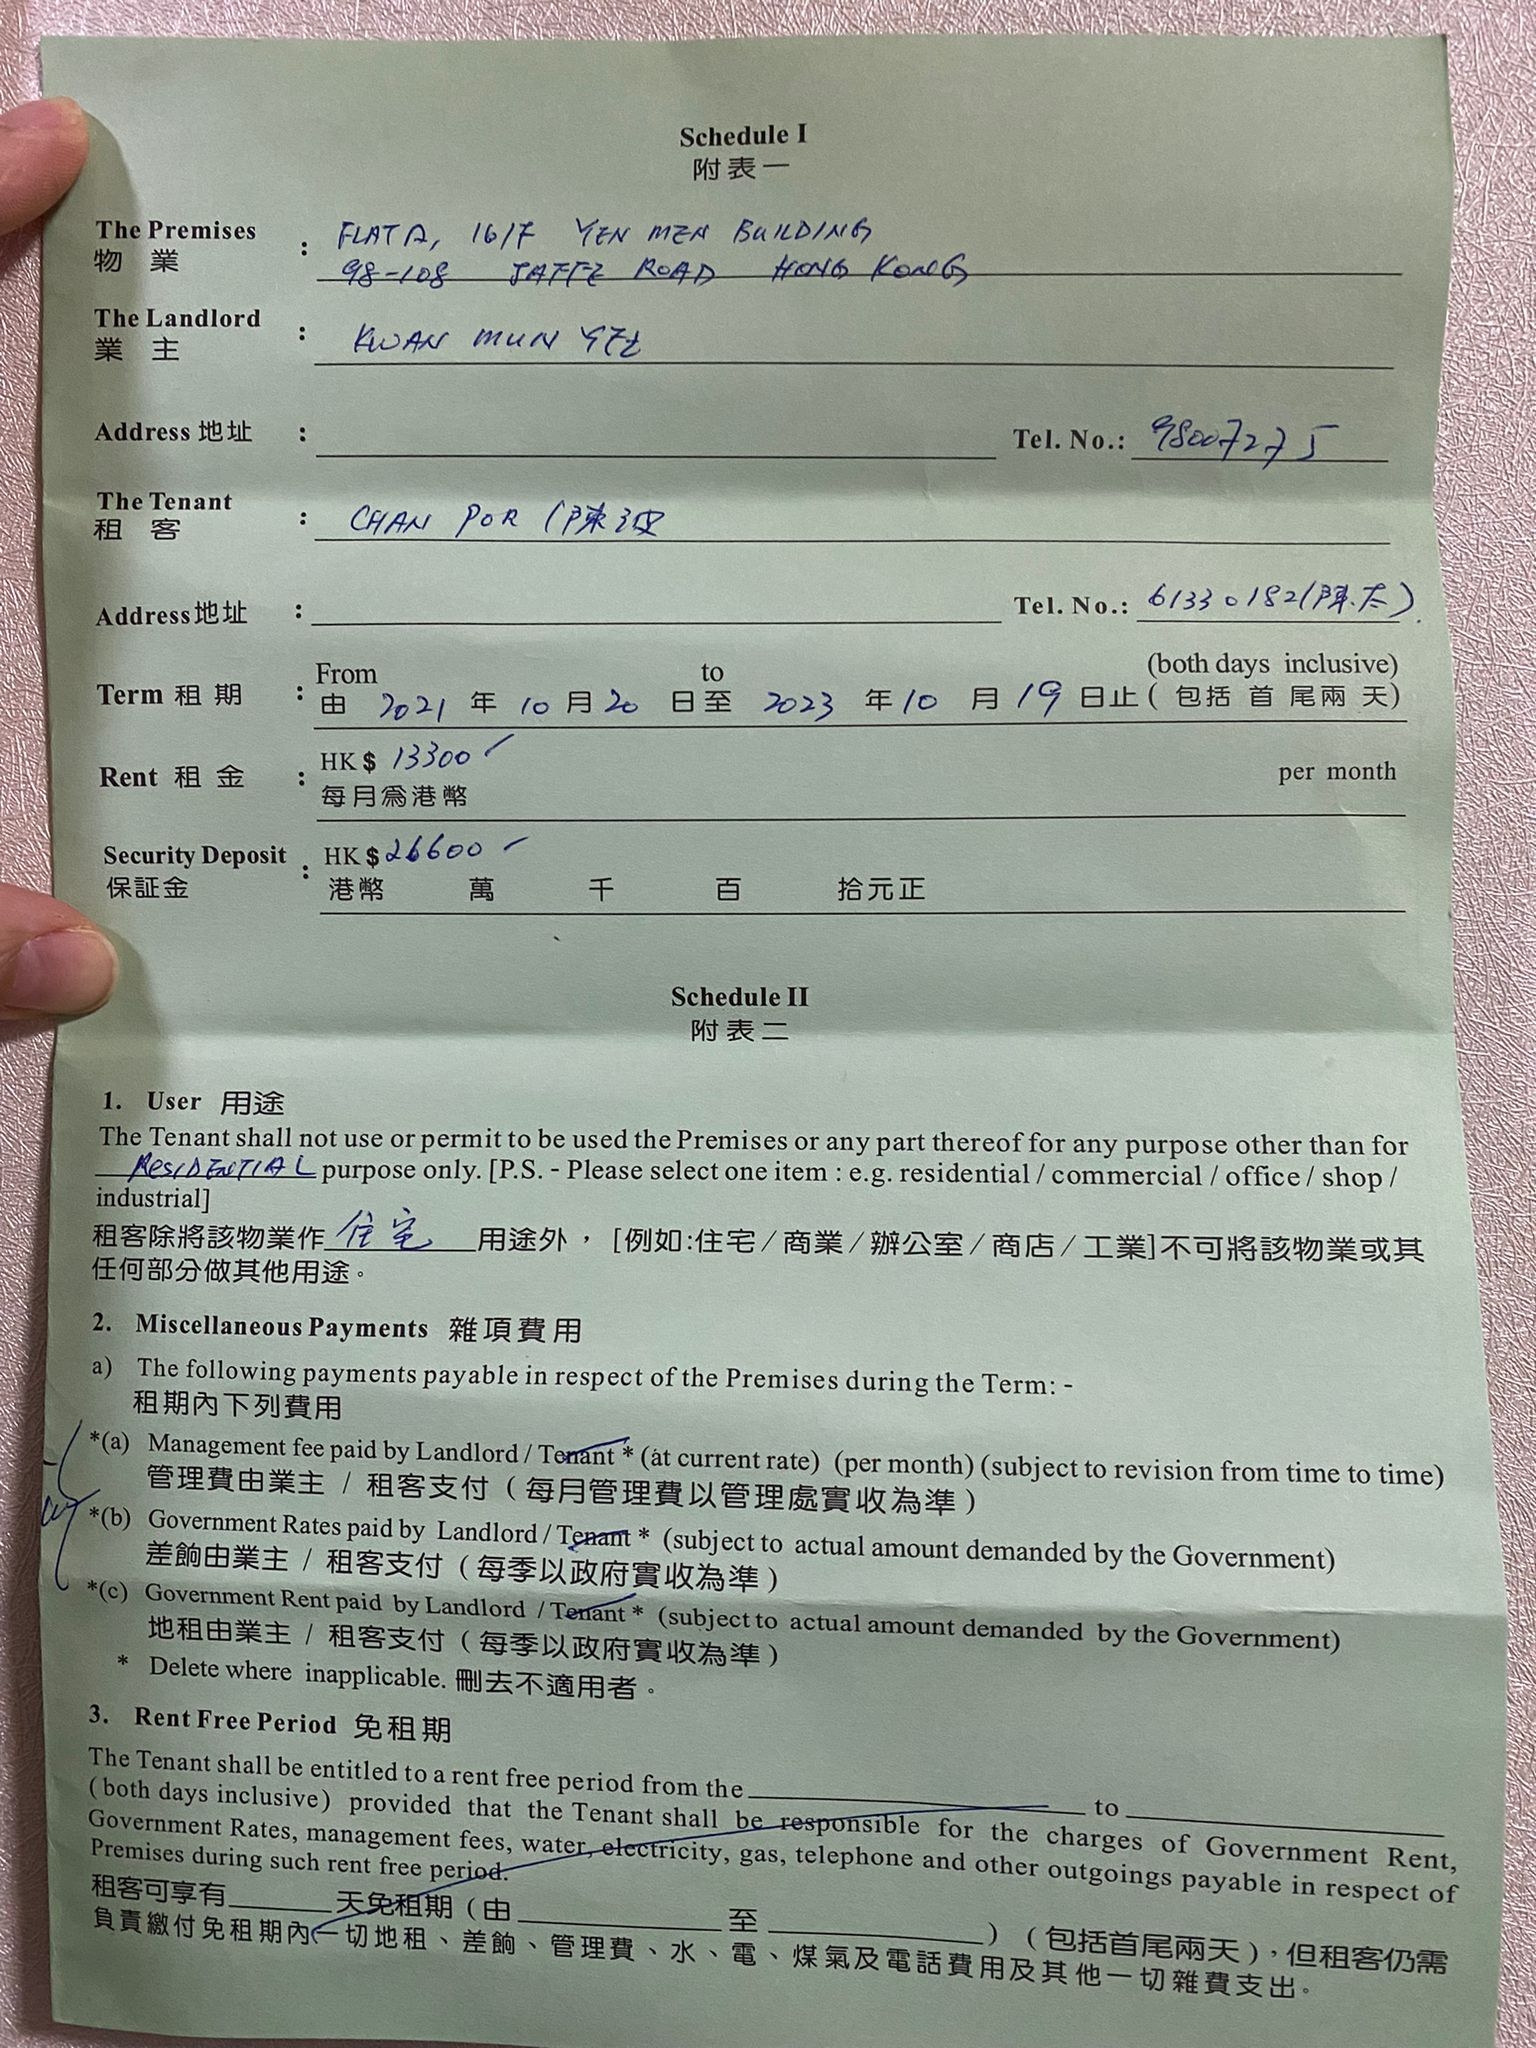 Schedule I
附表一
The Premises : FLAT A, 16/F YEN MEN BUILDING
物業 98-108 JAFFE ROAD HONG KONG
The Landlord : KWAN MUN YEE
業主
Address 地址 : Tel. No.: 98007275
The Tenant : CHAN POR (陳波
租客
Address 地址 : Tel. No.: 61330182(陳太)
From to (both days inclusive)
Term 租期 : 由 2021 年 10 月 20 日至 2023 年 10 月 19 日止 ( 包括首尾兩天)
Rent 租金 : HK $ 13300 per month
每月為港幣
Security Deposit : HK $ 26600
保証金 港幣 萬 千 百 拾元正
Schedule II
附表二
1. User 用途
The Tenant shall not use or permit to be used the Premises or any part thereof for any purpose other than for
RESIDENTIAL purpose only. [P.S. - Please select one item : e.g. residential / commercial / office / shop /
industrial]
租客除將該物業作 住宅 用途外， [例如:住宅/商業/辦公室/商店/工業]不可將該物業或其
任何部分做其他用途。
2. Miscellaneous Payments 雜項費用
a) The following payments payable in respect of the Premises during the Term: -
租期內下列費用
*(a) Management fee paid by Landlord / Tenant * (at current rate) (per month) (subject to revision from time to time)
管理費由業主 / 租客支付 ( 每月管理費以管理處實收為準 )
*(b) Government Rates paid by Landlord / Tenant * (subject to actual amount demanded by the Government)
差餉由業主 / 租客支付 ( 每季以政府實收為準 )
*(c) Government Rent paid by Landlord / Tenant * (subject to actual amount demanded by the Government)
地租由業主 / 租客支付 ( 每季以政府實收為準 )
* Delete where inapplicable. 刪去不適用者。
3. Rent Free Period 免租期
The Tenant shall be entitled to a rent free period from the to
(both days inclusive) provided that the Tenant shall be responsible for the charges of Government Rent,
Government Rates, management fees, water, electricity, gas, telephone and other outgoings payable in respect of
Premises during such rent free period.
租客可享有 天免租期 ( 由 至 ) ( 包括首尾兩天)，但租客仍需
負責繳付免租期內一切地租、差餉、管理費、水、電、煤氣及電話費用及其他一切雜費支出。